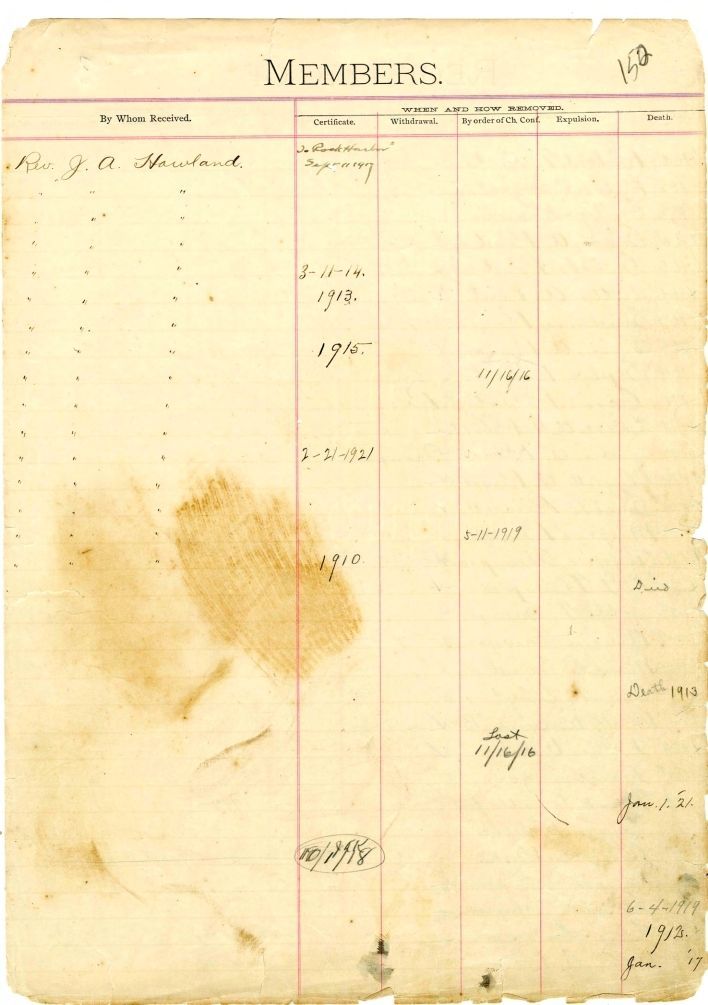 MEMBERS.
152
WHEN AND HOW REMOVED.
By Whom Received. Certificate. Withdrawal. By order of Ch. Conf. Expulsion. Death.
Rev. J. A. Howland. To Rock Harbor
Sept 11 1917
" " "
" " "
" " "
" " " 3-11-14.
" " " 1913.
" " "
" " " 1915.
" " " 11/16/16
" " "
" " "
" " " 2-21-1921
" " "
" " "
" " " 5-11-1919
" " " 1910.
Died
Death 1913
Lost
11/16/16
Jan. 1. '21.
6-4-1919
1913.
Jan. '17